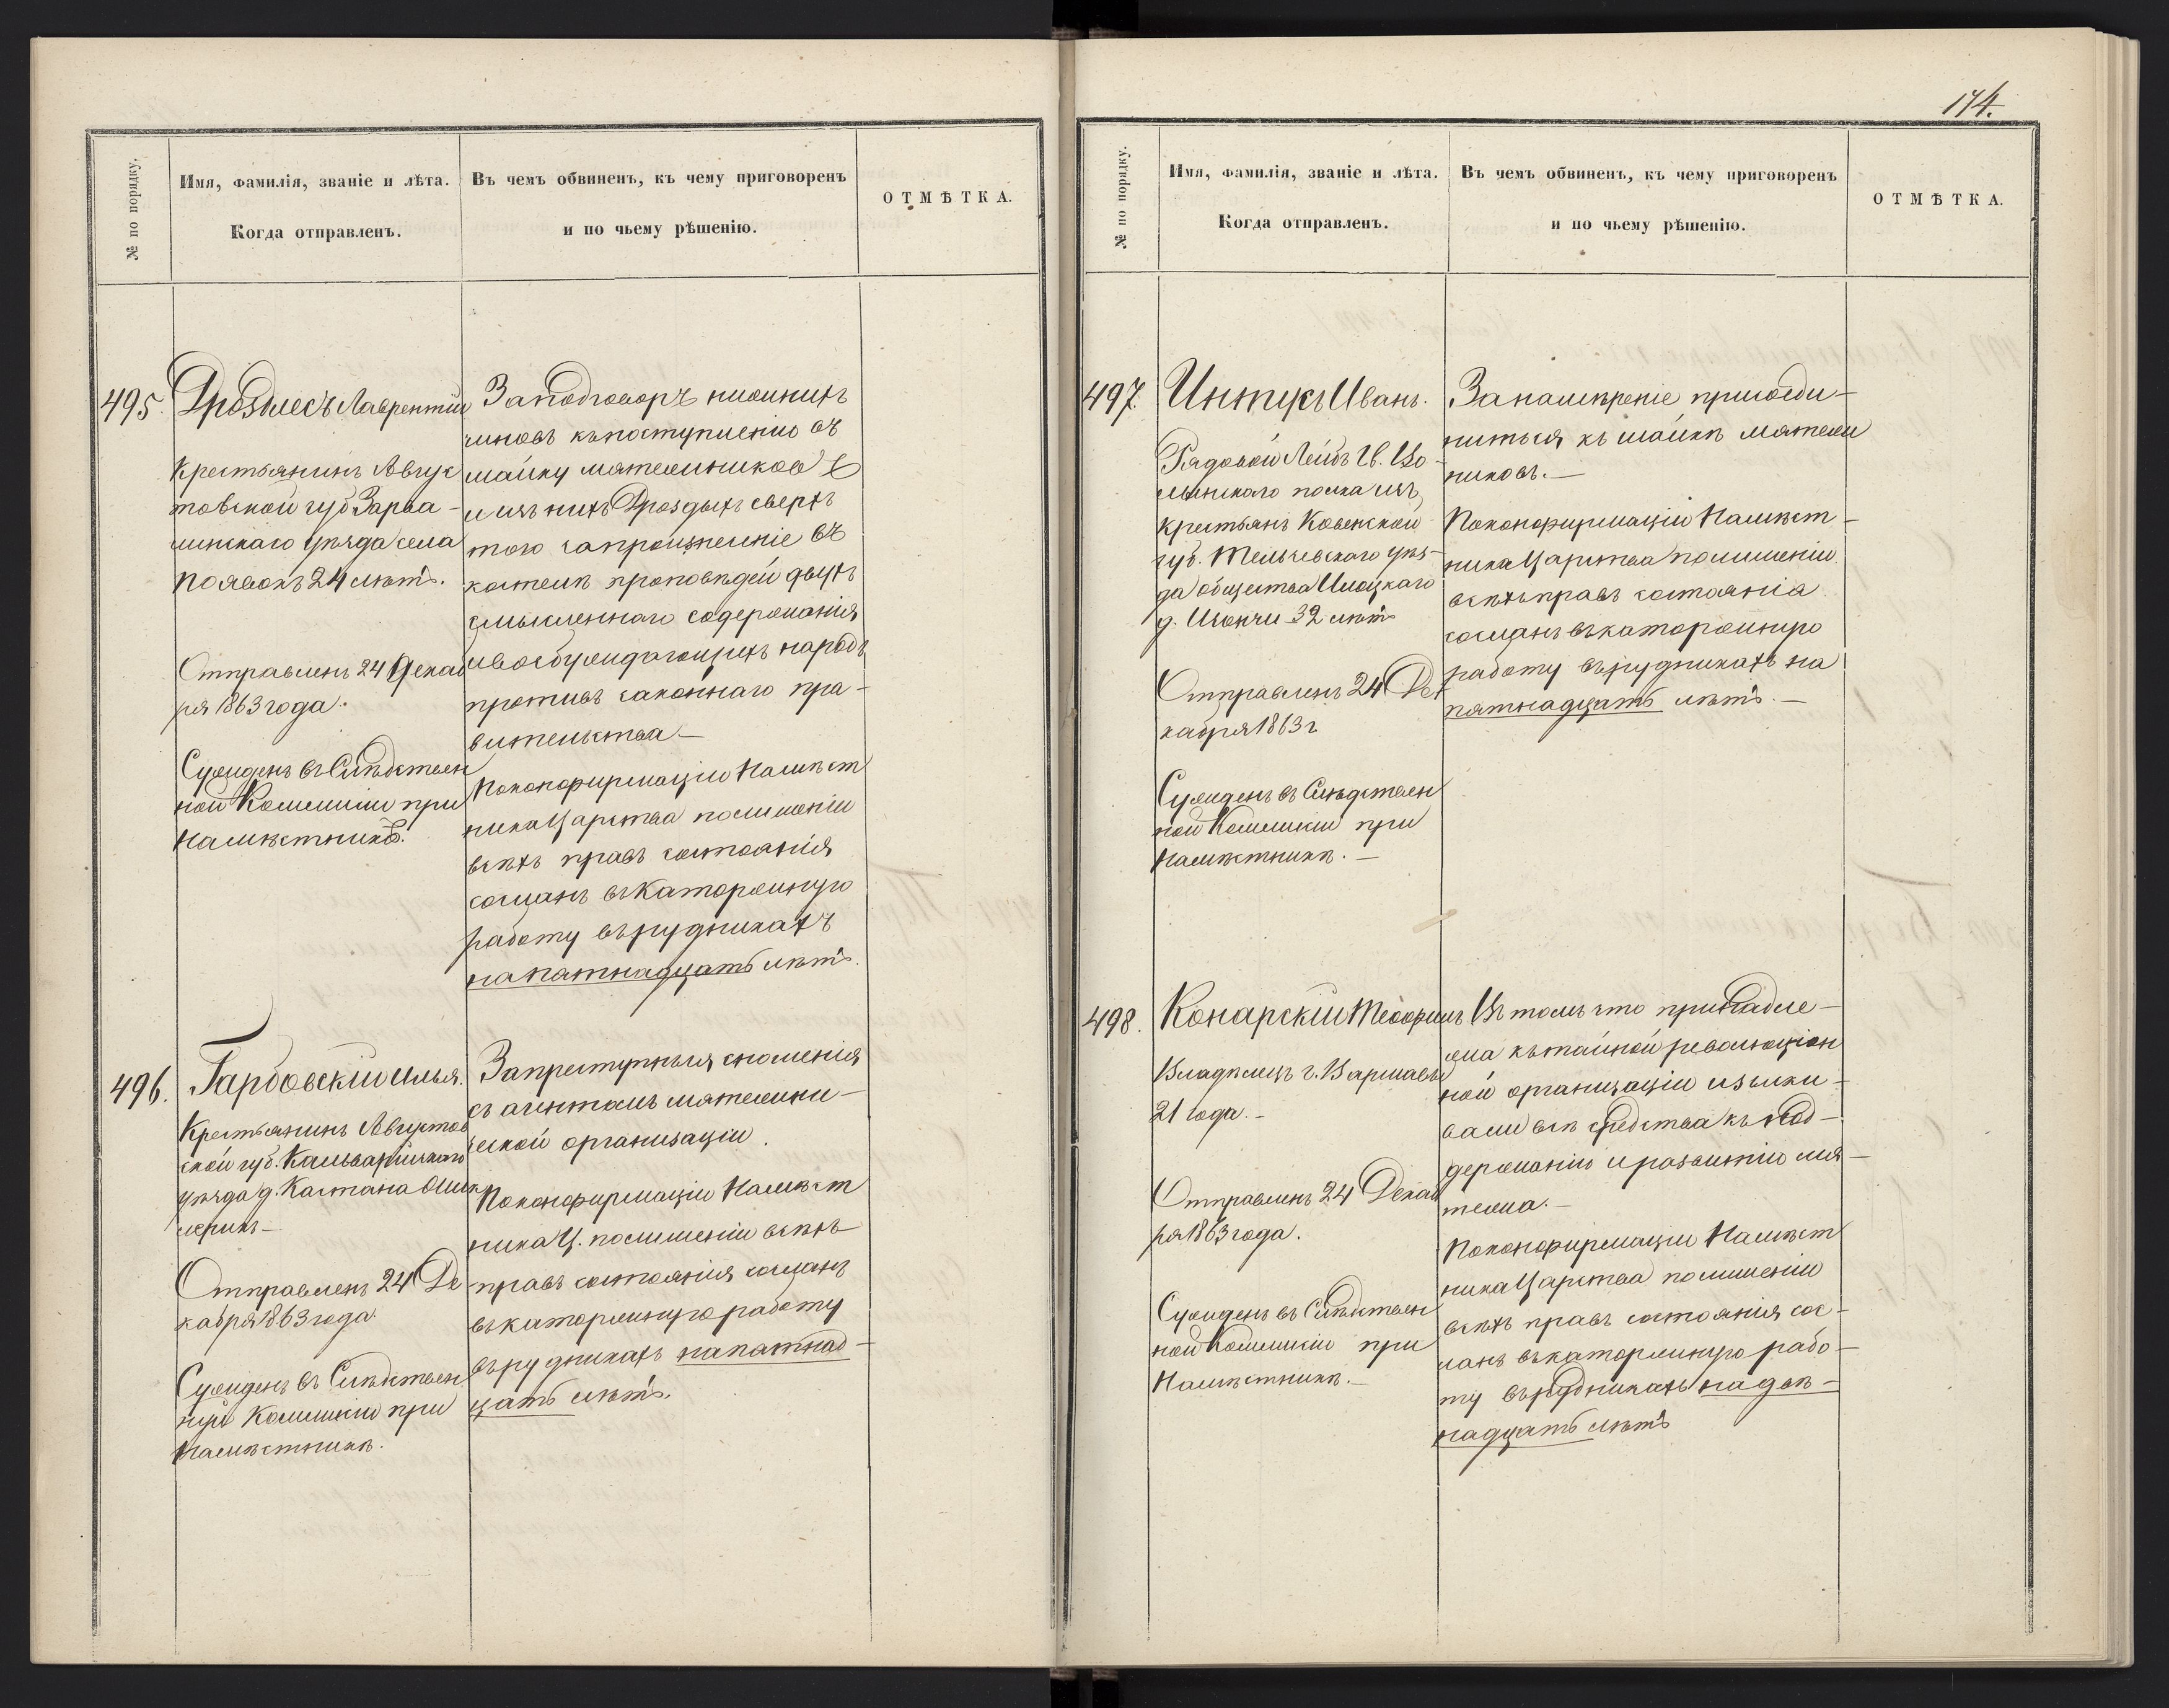 174.
№ по порядку.
Имя, фамилія, званіе и лѣта.
Когда отправленъ.
Въ чемъ обвиненъ, къ чему приговоренъ
и по чьему рѣшенію.
ОТМѢТКА.
495.
Лаврентій
Крестьянинъ Авгус
товской губ
уѣзда села
24 лѣтъ.
Отправленъ 24 Декаб
ря 1863 года.
Сужденъ въ Слѣдствен
ной Коммисіи при
Намѣстникѣ.
За подговоръ нижнихъ
чиновъ къ поступленію въ
шайку мятежниковъ
изъ нихъ сверхъ
того за произнесеніе въ
костелѣ проповѣдей двухъ
смысленнаго содержанія
и возбуждающихъ народъ
противъ законнаго пра-
вительства.—
По конфирмаціи Намѣст
ника Царства по лишеніи
всѣхъ правъ состоянія
сосланъ въ каторжную
работу въ рудникахъ
на пятнадцать лѣтъ.
496.
Гарбовскій Илья.
Крестьянинъ Августов
ской губ. Кальварійскаго
уѣзда д.
Отправленъ 24 Де
кабря 1863 года.
Сужденъ въ Слѣдствен
ной Коммисіи при
Намѣстникѣ.
За преступныя сношенія
съ агентомъ мятежни-
ческой организаціи.
По конфирмаціи Намѣст
ника Ц. по лишеніи всѣхъ
правъ состоянія сосланъ
въ каторжную работу
въ рудникахъ на пятнад-
цать лѣтъ.
№ по порядку.
Имя, фамилія, званіе и лѣта.
Когда отправленъ.
Въ чемъ обвиненъ, къ чему приговоренъ
и по чьему рѣшенію.
ОТМѢТКА.
497.
Интукъ Иванъ.
Рядовой Лейбъ Гв. Во-
лынскаго полка изъ
крестьянъ Ковенской
губ. Тельшевскаго уѣз-
да общества
д. 32 лѣтъ
Отправленъ 24 Де
кабря 1863 г
Сужденъ въ Слѣдствен
ной Коммисіи при
Намѣстникѣ.—
За намѣреніе присоеди-
ниться къ шайкѣ мятеж
никовъ.—
По конфирмаціи Намѣст-
ника Царства по лишеніи
всѣхъ правъ состоянія
сосланъ въ каторжную
работу въ рудникахъ на
пятнадцать лѣтъ.—
498.
Конарскій Теофилъ
Владѣлецъ г. Варшавы
21 года.—
Отправленъ 24 Декаб
ря 1863 года.
Сужденъ въ Слѣдствен
ной Коммисіи при
Намѣстникѣ.—
Въ томъ что принадле-
жа къ тайной революціон
ной организаціи изыски-
валъ всѣ средства къ под-
держанію и развитію мя-
тежа.—
По конфирмаціи Намѣст
ника Царства по лишеніи
всѣхъ правъ состоянія сос-
ланъ въ каторжную рабо-
ту въ рудникахъ на двѣ-
надцать лѣтъ